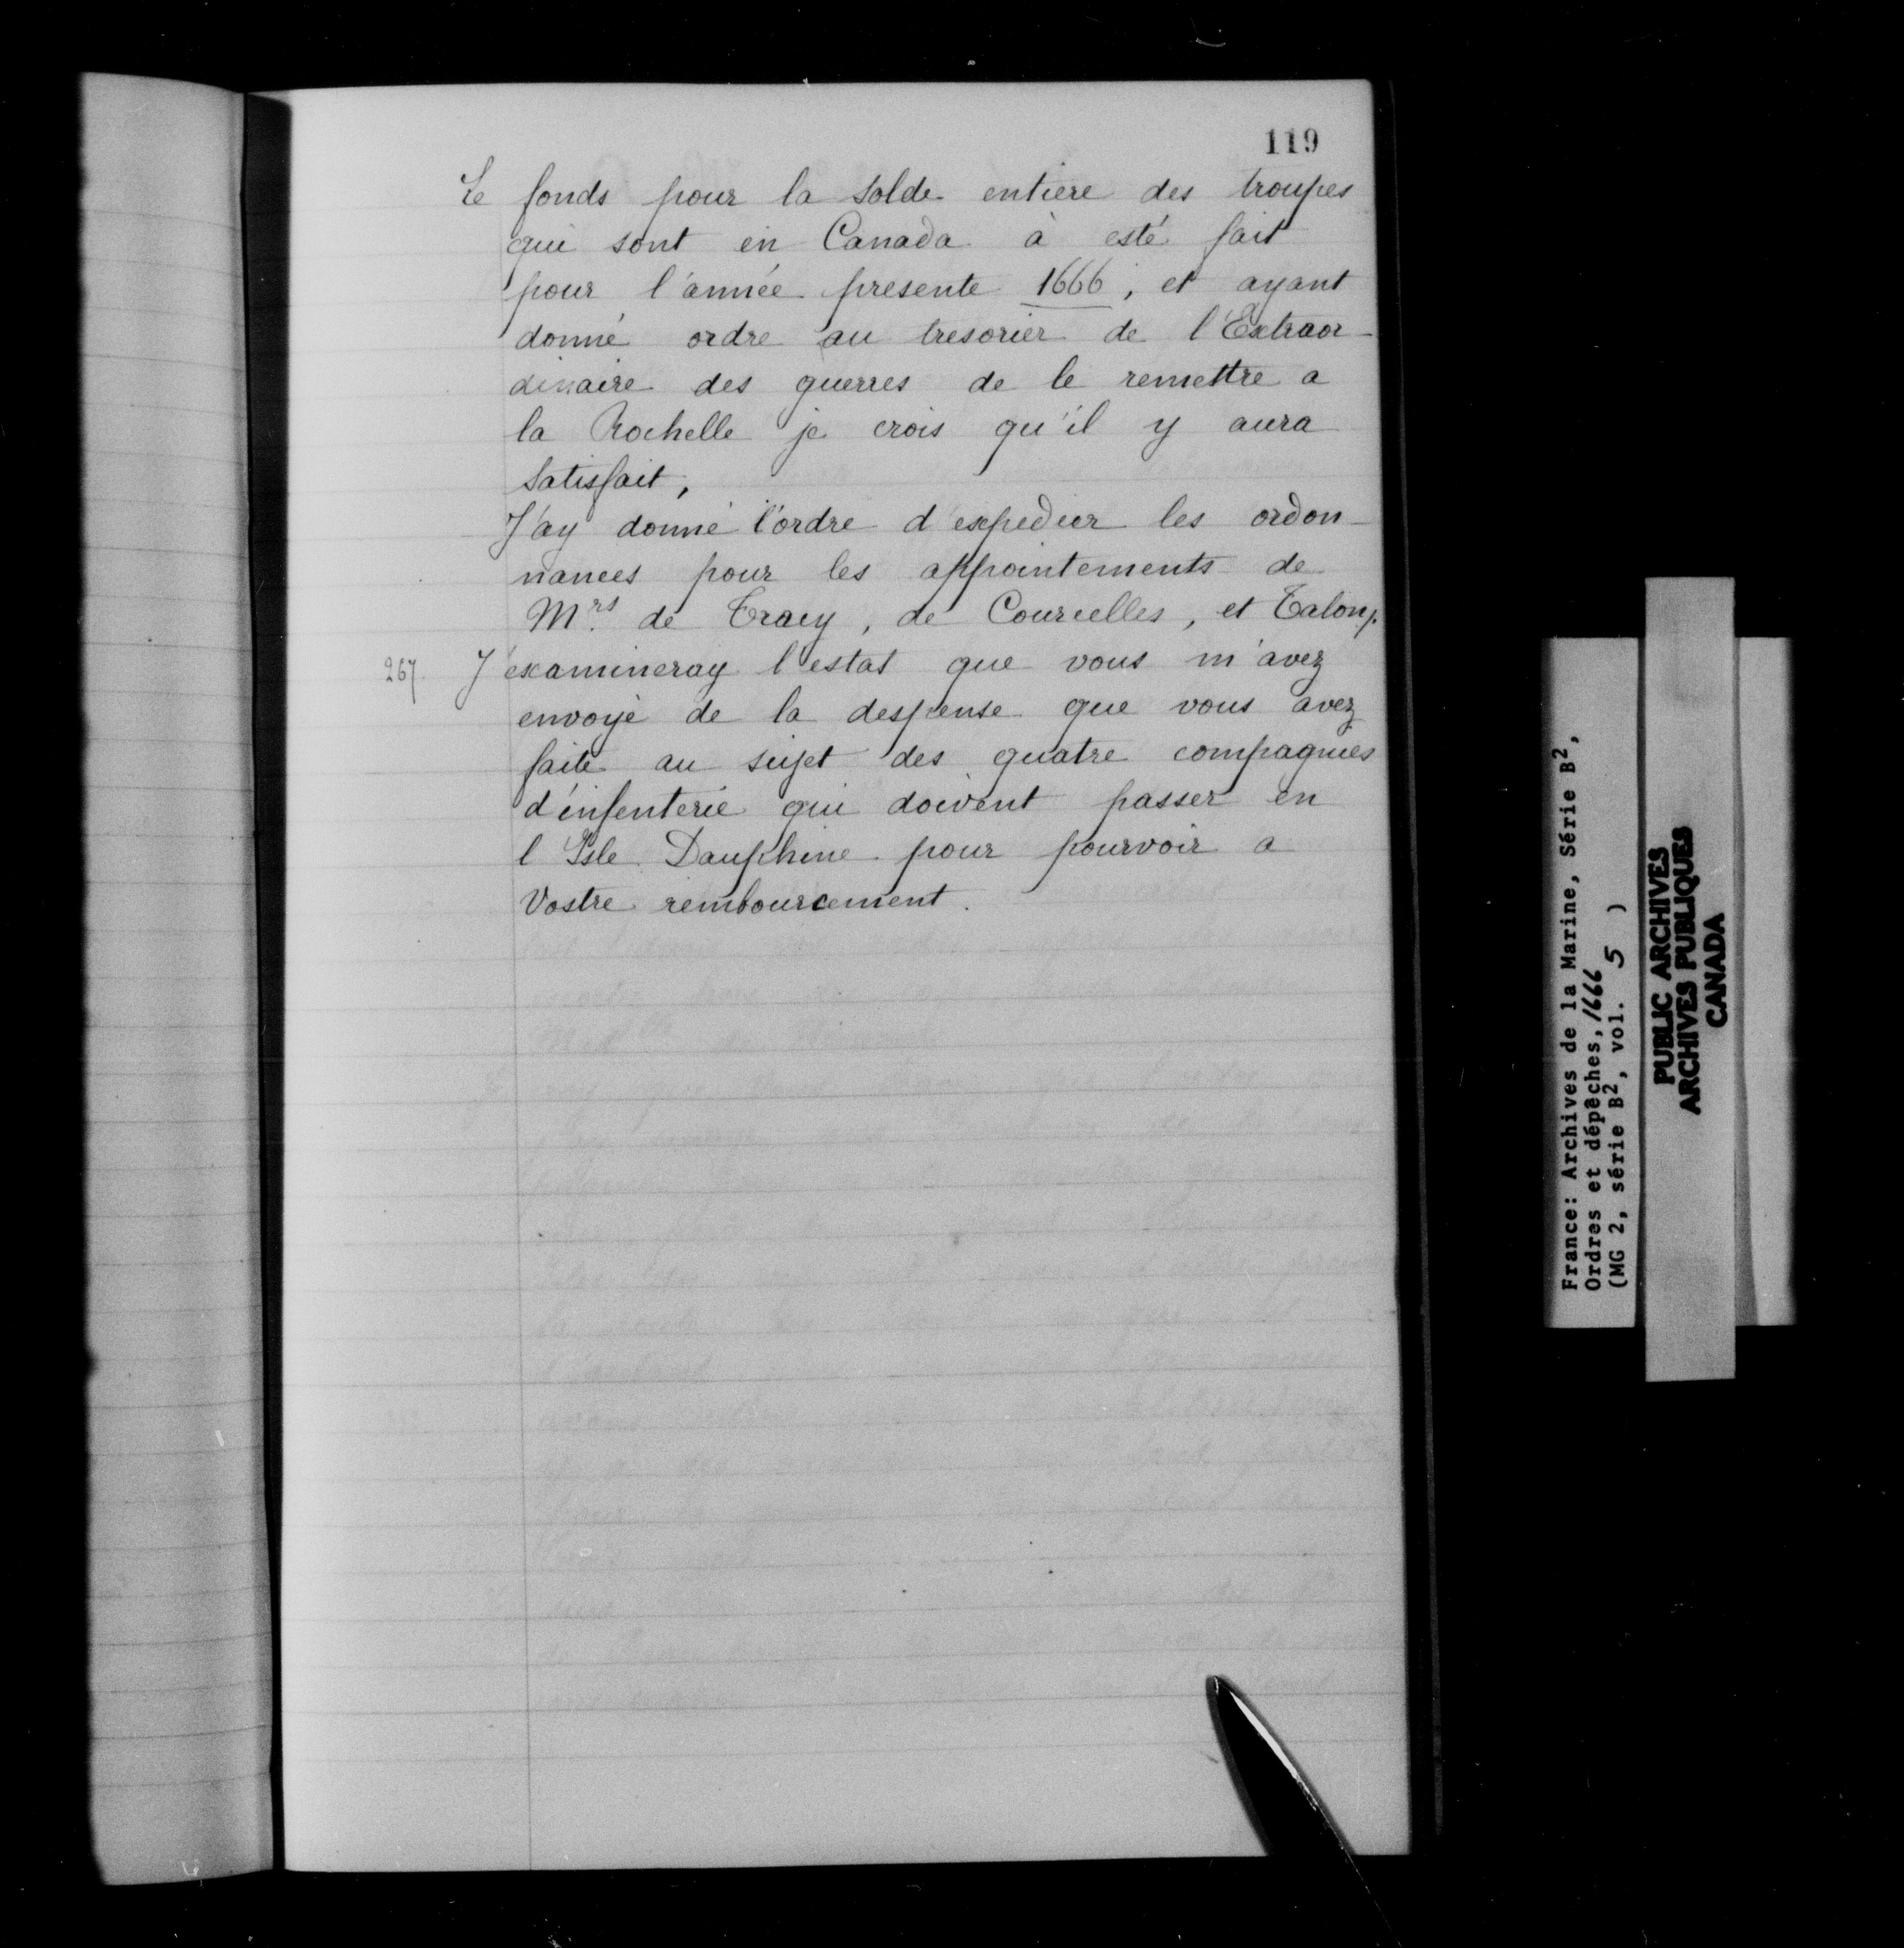 119
Le fonds pour la solde entiere des troupes
qui sont en Canada à esté fait
pour l'année presente 1666, et ayant
donné ordre au tresorier de l'Extraor-
dinaire des guerres de le remettre a
la Rochelle je crois qu'il y aura
satisfait,
J'ay donné l'ordre d'expedier les ordon-
nances pour les appointements de
Mrs. de Tracy, de Courcelles, et Talon,
267. J'examineray l'estat que vous m'avez
envoyé de la despense que vous avez
faite au sujet des quatre compagnies
d'infenterie qui doivent passer en
l'Isle Dauphine pour pourvoir a
Vostre remboursement.
France: Archives de la Marine, Série B2,
Ordres et dépêches, 1666
(MG 2, série B2, vol. 5 )
PUBLIC ARCHIVES
ARCHIVES PUBLIQUES
CANADA